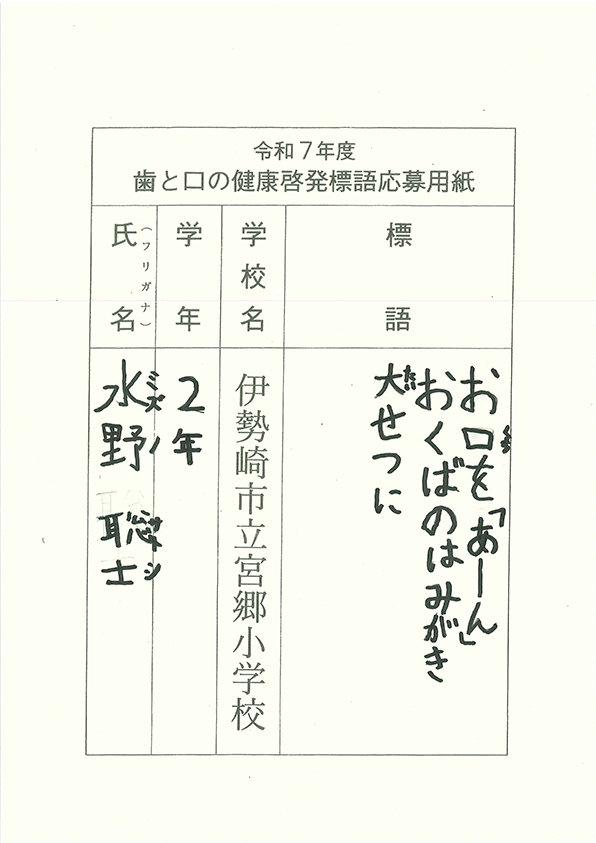 令和7年度
歯と口の健康啓発標語応募用紙
標語
お口を「あーん」
おくばのはみがき
大せつに
学校名
伊勢崎市立宮郷小学校
学年
2年
氏名
(フリガナ)
水野 聡士
ミズノ サトシ